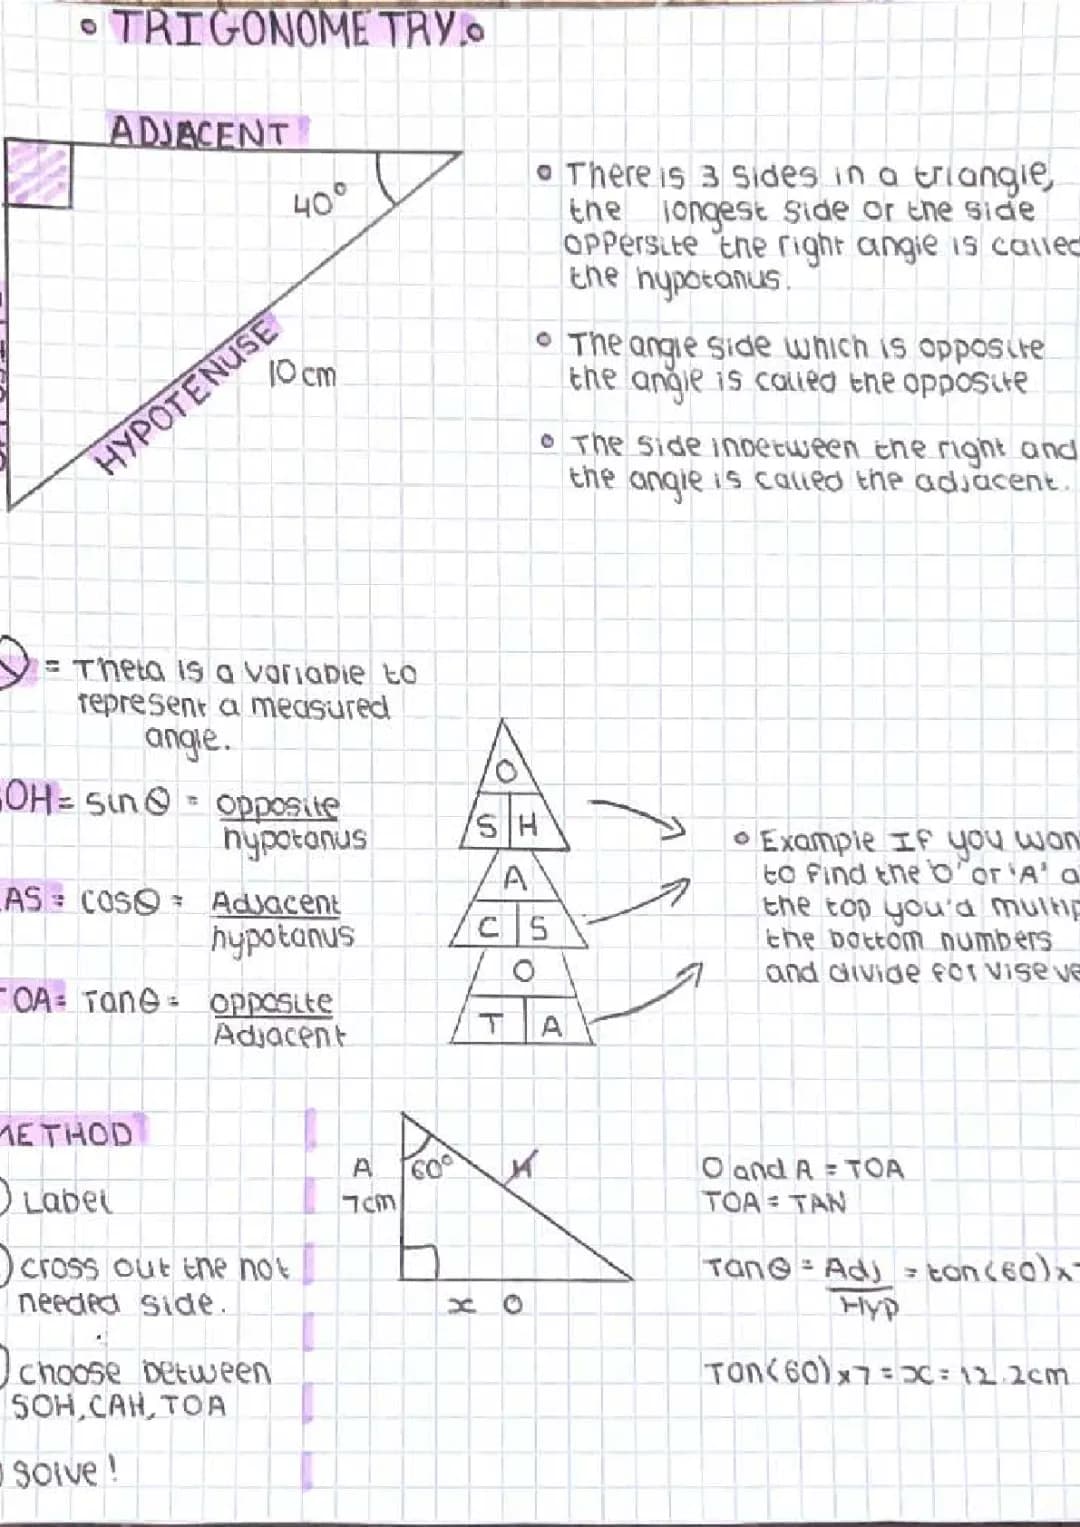 • TRIGONOMETRY •
ADJACENT
40°
HYPOTENUSE
10cm
• There is 3 sides in a triangle,
the longest side or the side
oppersite the right angle is called
the hypotanus.
• The angle side which is opposite
the angle is called the opposite
• The side inbetween the right and
the angle is called the adjacent.
= Theta is a variable to
represent a measured
angle.
SOH = sinθ = opposite
hypotanus
AS = cosθ = Adjacent
hypotanus
TOA = Tanθ = opposite
Adjacent
O
S H
A
C S
O
T A
• Example If you wan
to find the 'O' or 'A' a
the top you'd multip
the bottom numbers
and divide for vise ve
METHOD
Label
cross out the not
needed side.
choose between
SOH, CAH, TOA
solve!
A
7cm
60°
H
x O
O and A = TOA
TOA = TAN
Tanθ = Adj = tan(60)x
Hyp
Tan(60)x7 = x = 12.2cm